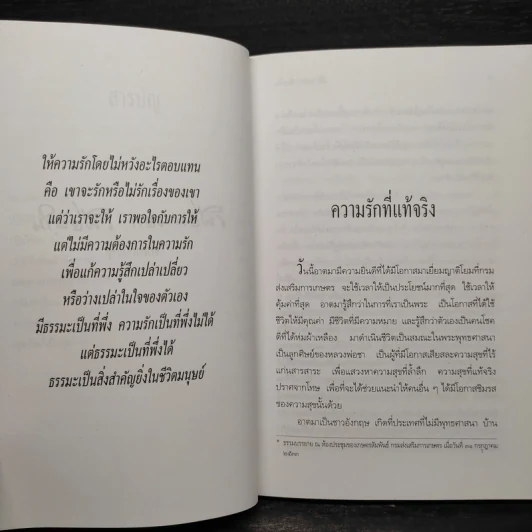 ให้ความรักโดยไม่หวังอะไรตอบแทน
คือ เขาจะรักหรือไม่รักเรื่องของเขา
แต่ว่าเราจะให้ เราพอใจกับการให้
แต่ไม่มีความต้องการในความรัก
เพื่อแก้ความรู้สึกเปล่าเปลี่ยว
หรือว่างเปล่าในใจของตัวเอง
มีธรรมะเป็นที่พึ่ง ความรักเป็นที่พึ่งไม่ได้
แต่ธรรมะเป็นที่พึ่งได้
ธรรมะเป็นสิ่งสำคัญยิ่งในชีวิตมนุษย์
ความรักที่แท้จริง
วันนี้อาตมามีความยินดีที่ได้มีโอกาสมาเยี่ยมญาติโยมที่กรม
ส่งเสริมการเกษตร จะใช้เวลาให้เป็นประโยชน์มากที่สุด ใช้เวลาให้
คุ้มค่าที่สุด อาตมารู้สึกว่าในการที่เราเป็นพระ เป็นโอกาสที่ได้ใช้
ชีวิตให้มีคุณค่า มีชีวิตที่มีความหมาย และรู้สึกว่าตัวเองเป็นคนโชค
ดีที่ได้ห่มผ้าเหลือง มาดำเนินชีวิตเป็นสมณะในพระพุทธศาสนา
เป็นลูกศิษย์ของหลวงพ่อชา เป็นผู้ที่มีโอกาสเสียสละความสุขที่ไร้
แก่นสารสาระ เพื่อแสวงหาความสุขที่ล้ำลึก ความสุขที่แท้จริง
ปราศจากโทษ เพื่อที่จะได้ช่วยแนะนำให้คนอื่น ๆ ได้มีโอกาสชิมรส
ของความสุขนั้นด้วย
อาตมาเป็นชาวอังกฤษ เกิดที่ประเทศที่ไม่มีพุทธศาสนา บ้าน
* ธรรมบรรยาย ณ ห้องประชุมของเกษตรสัมพันธ์ กรมส่งเสริมการเกษตร เมื่อวันที่ ๓๑ กรกฎาคม